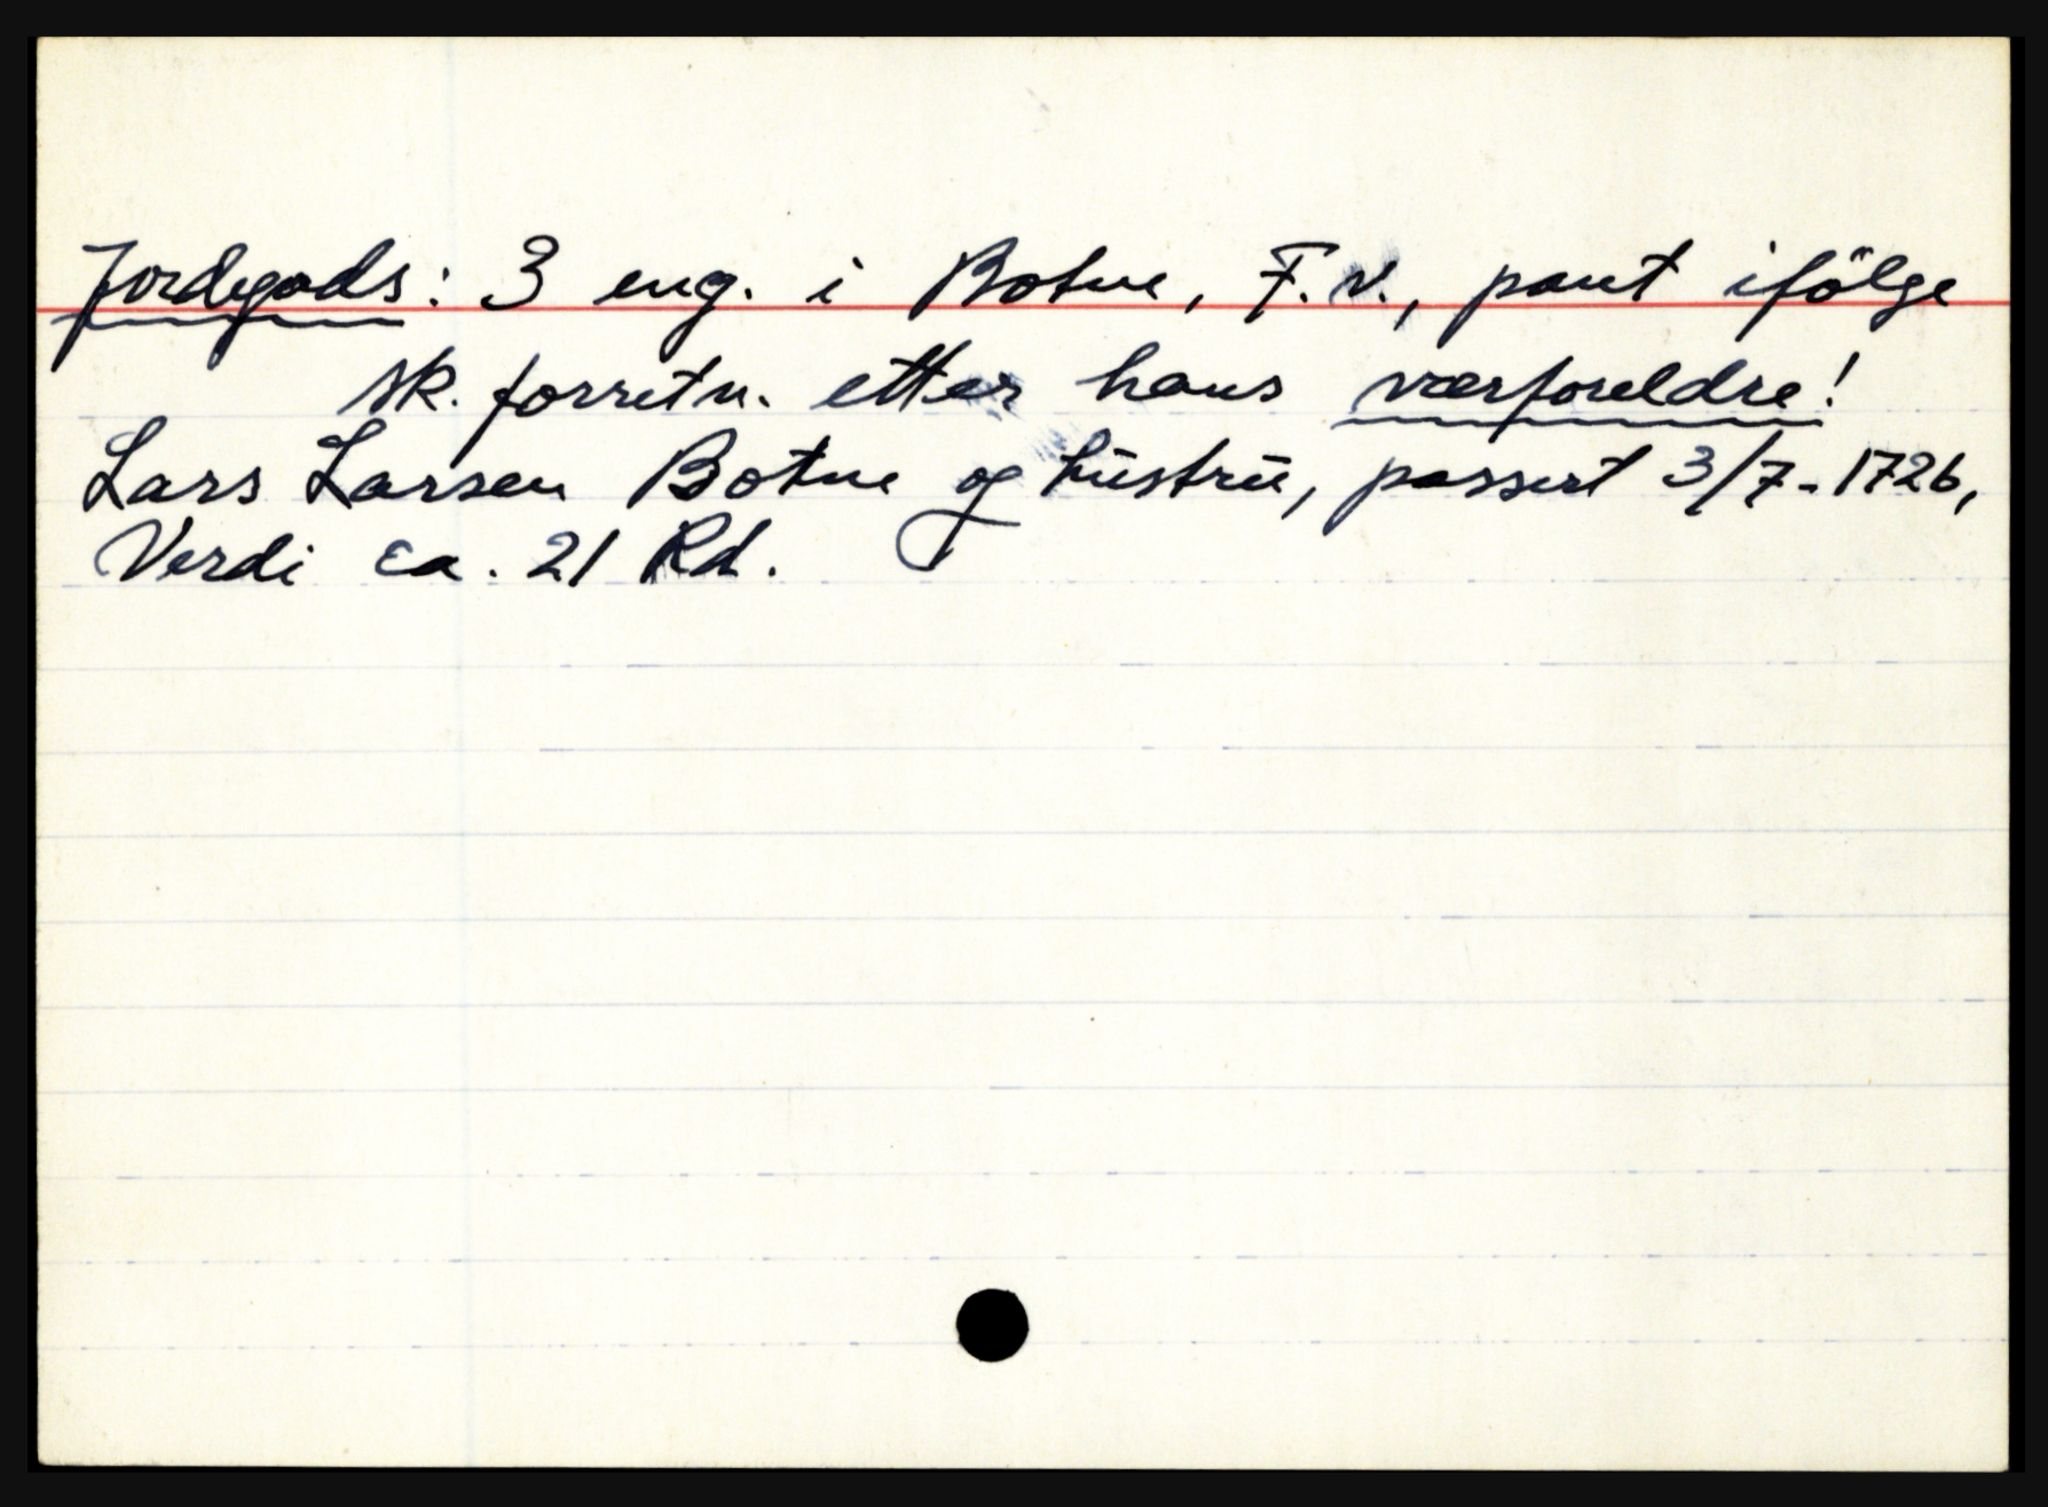 Jordegods: 3 eng. i Botne, F.v., pant ifölge
sk. forretn. etter hans værforeldre!
Lars Larsen Botne og hūstrū, passert 3/7-1726,
Verdi ca. 21 Rd.